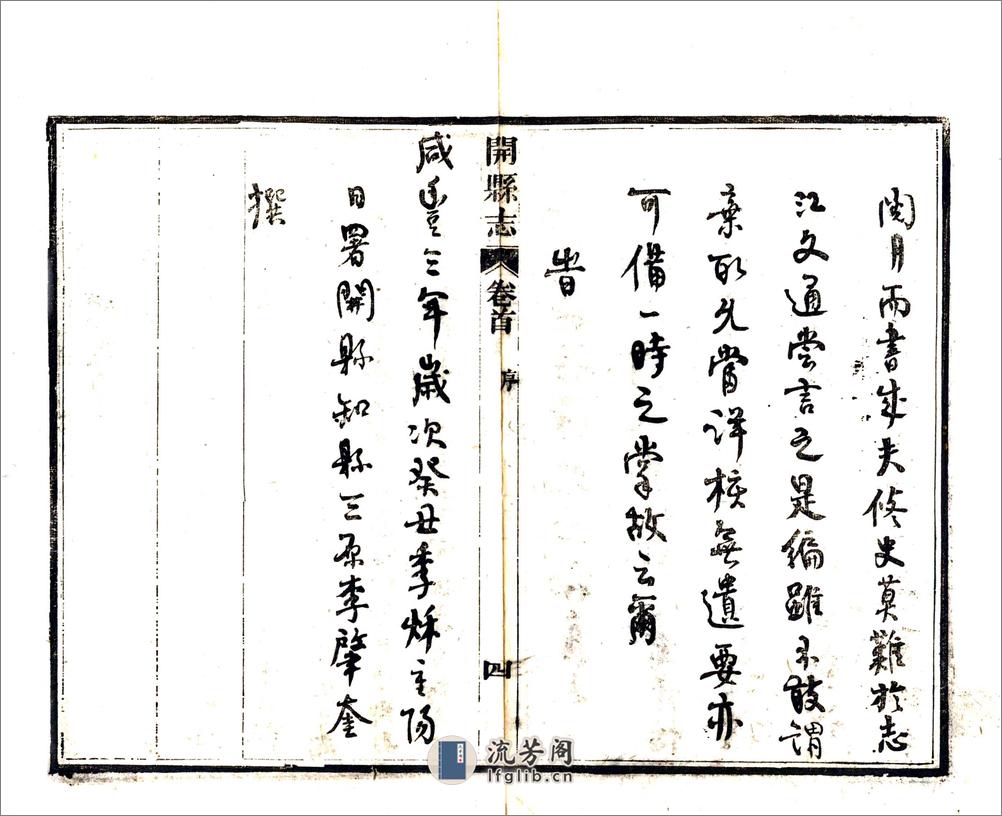 閱月而書成夫修史莫難於志
江文通嘗言之是編雖不敢謂
棄取允當詳核無遺要亦
可備一時之掌故云爾
昔
開縣志 卷首 序 四
咸豐三年歲次癸丑季秋重陽
日署開縣知縣三原李肇奎
撰
流芳阁
lfglib.cn